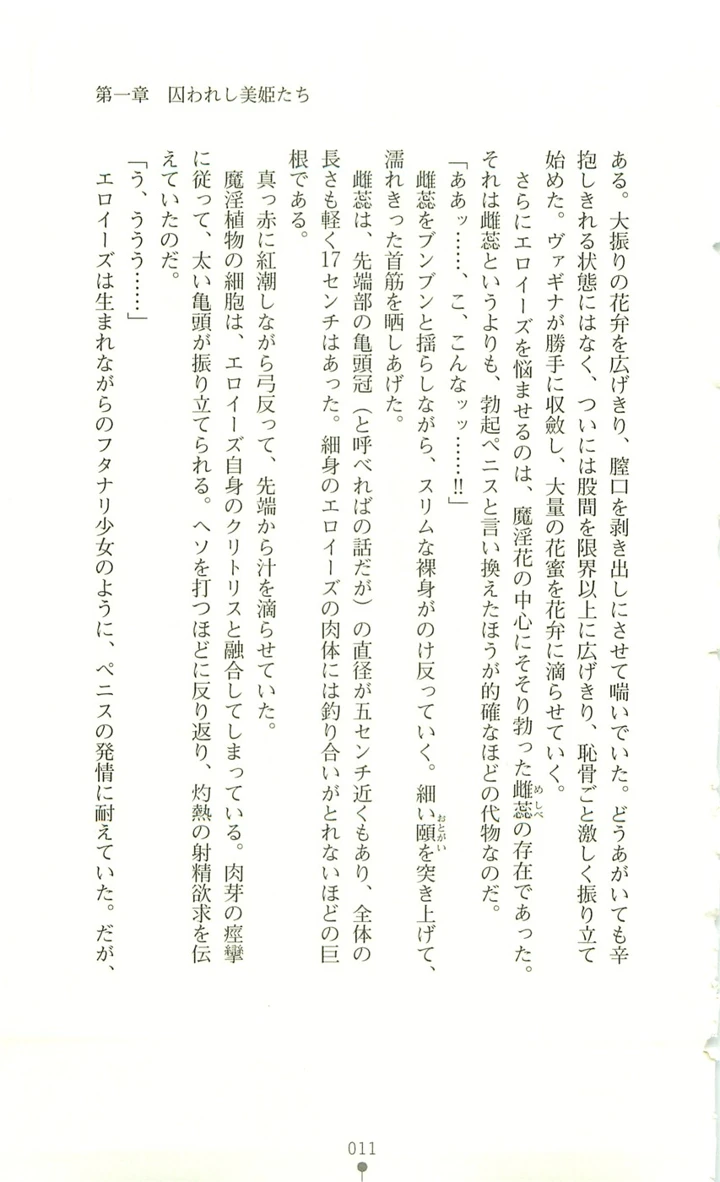 第一章　囚われし美姫たち
ある。大振りの花弁を広げきり、膣口を剥き出しにさせて喘いでいた。どうあがいても辛
抱しきれる状態にはなく、ついには股間を限界以上に広げきり、恥骨ごと激しく振り立て
始めた。ヴァギナが勝手に収斂し、大量の花蜜を花弁に滴らせていく。
さらにエロイーズを悩ませるのは、魔淫花の中心にそそり勃った雌蕊の存在であった。
めしべ
それは雌蕊というよりも、勃起ペニスと言い換えたほうが的確なほどの代物なのだ。
「ああッ……、こ、こんなッッ……‼」
雌蕊をブンブンと揺らしながら、スリムな裸身がのけ反っていく。細い頤を突き上げて、
おとがい
濡れきった首筋を晒しあげた。
雌蕊は、先端部の亀頭冠（と呼べればの話だが）の直径が五センチ近くもあり、全体の
長さも軽く17センチはあった。細身のエロイーズの肉体には釣り合いがとれないほどの巨
根である。
真っ赤に紅潮しながら弓反って、先端から汁を滴らせていた。
魔淫植物の細胞は、エロイーズ自身のクリトリスと融合してしまっている。肉芽の痙攣
に従って、太い亀頭が振り立てられる。ヘソを打つほどに反り返り、灼熱の射精欲求を伝
えていたのだ。
「う、ううう……」
エロイーズは生まれながらのフタナリ少女のように、ペニスの発情に耐えていた。だが、
011